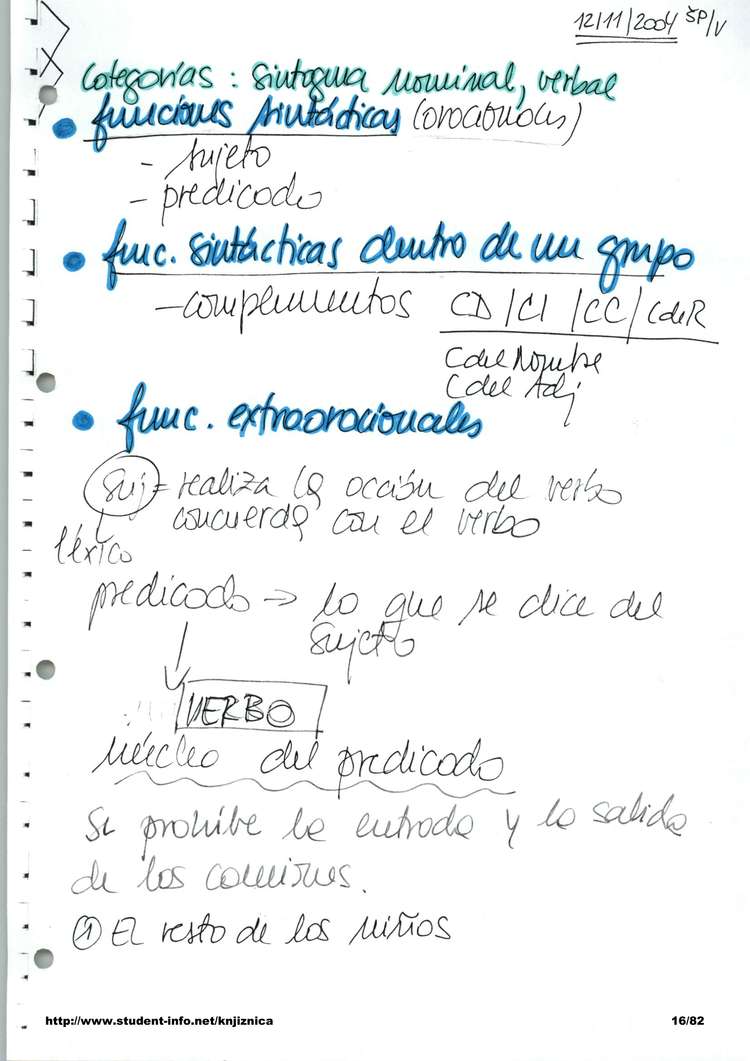 12/11/2004 ŠP/V
Categorías : Sintagma nominal, verbal
funciones sintácticas (oracionales)
- sujeto
- predicado
func. sintácticas dentro de un grupo
- complementos CD / CI / CC / CdeR
C del Nombre
C del Adj
func. extraoracionales
Suj = realiza la acción del verbo
concuerda con el verbo
léxico
predicado → lo que se dice del
sujeto
VERBO
núcleo del predicado
Se prohibe la entrada y la salida
de los camiones.
① El resto de los niños
http://www.student-info.net/knjiznica 16/82